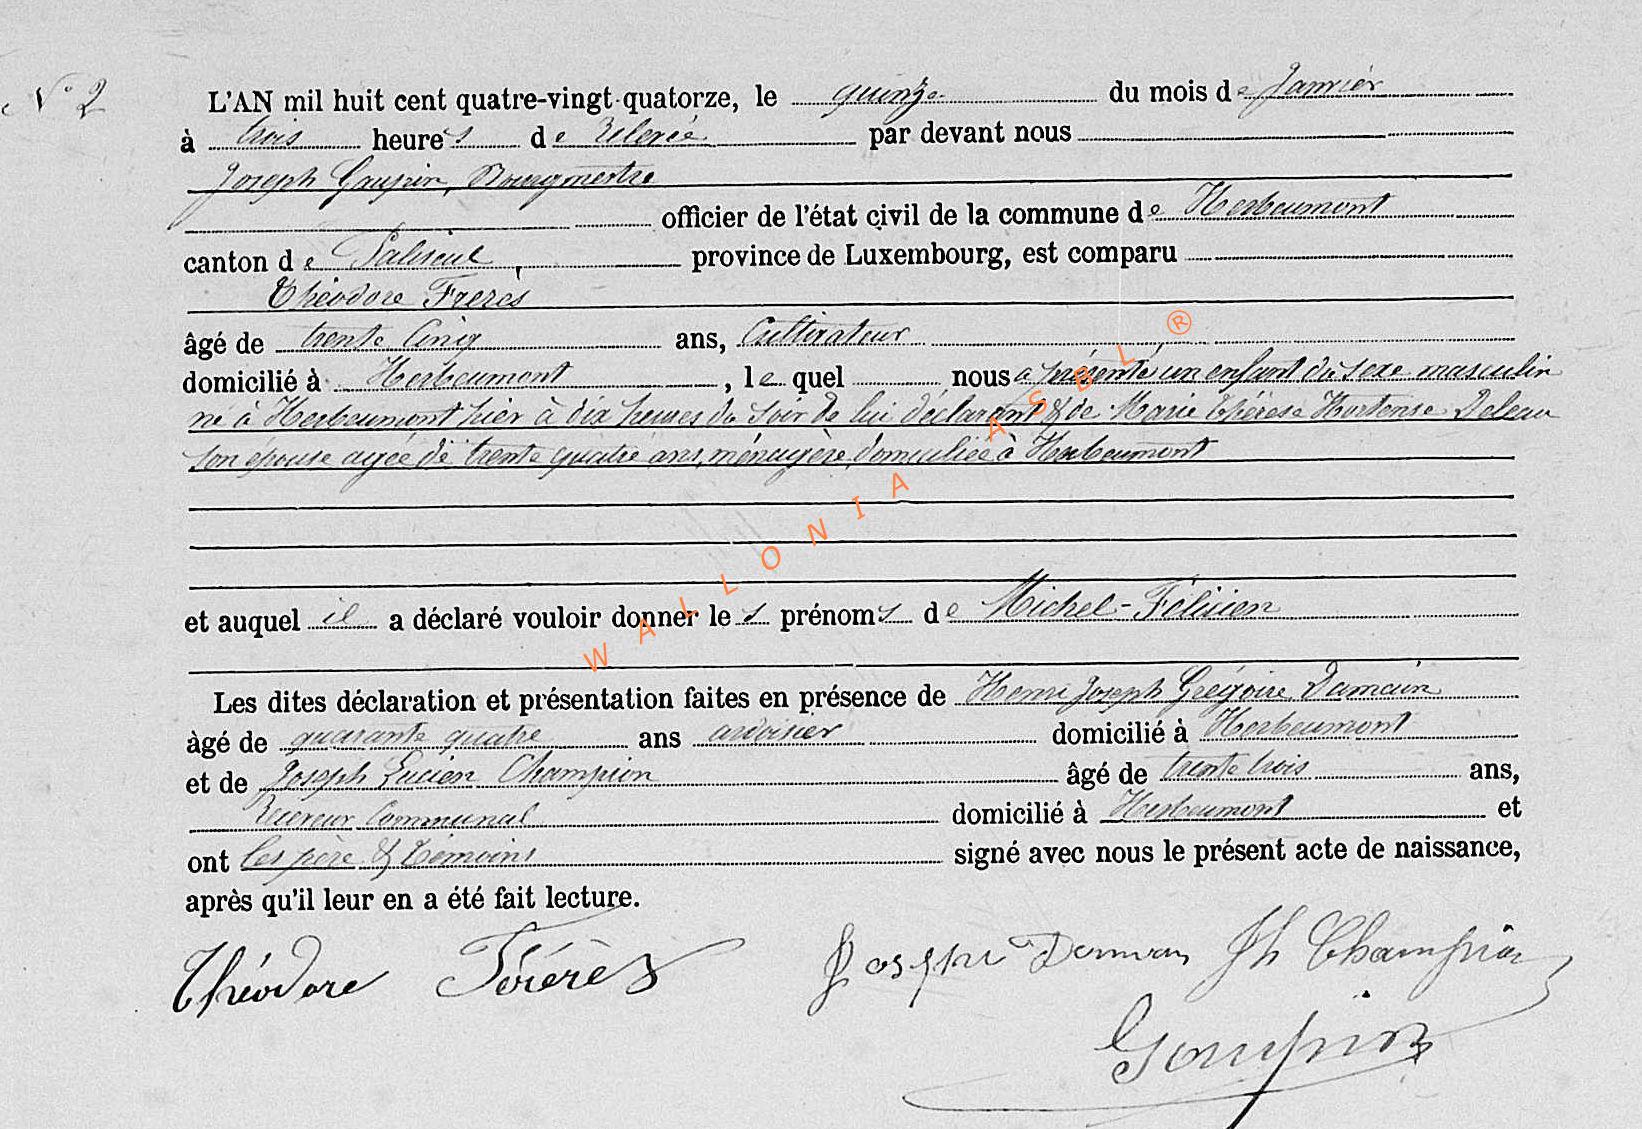 N° 2
L'AN mil huit cent quatre-vingt-quatorze, le quinze du mois de Janvier
à trois heures de Relevée par devant nous
Joseph Goupin, Bourgmestre
officier de l'état civil de la commune de Herbeumont
canton de Paliseul, province de Luxembourg, est comparu
Théodore Freres
âgé de trente cinq ans, Cultivateur
domicilié à Herbeumont, lequel nous a présenté un enfant du sexe masculin
né à Herbeumont hier à dix heures du soir de lui déclarant & de Marie Thérèse Hortense Deleau
son épouse agée de trente quatre ans, ménagère, domiciliée à Herbeumont
et auquel il a déclaré vouloir donner les prénoms de Michel-Félicien
Les dites déclaration et présentation faites en présence de Henri Joseph Grégoire Damain
âgé de quarante quatre ans ardoisier domicilié à Herbeumont
et de Joseph Lucien Champion âgé de trente trois ans,
Receveur Communal domicilié à Herbeumont et
ont les père & témoins signé avec nous le présent acte de naissance,
après qu'il leur en a été fait lecture.
Théodore Fréres Joseph Damain Jh Champion
Goupin
WALLONIA ASBL ®